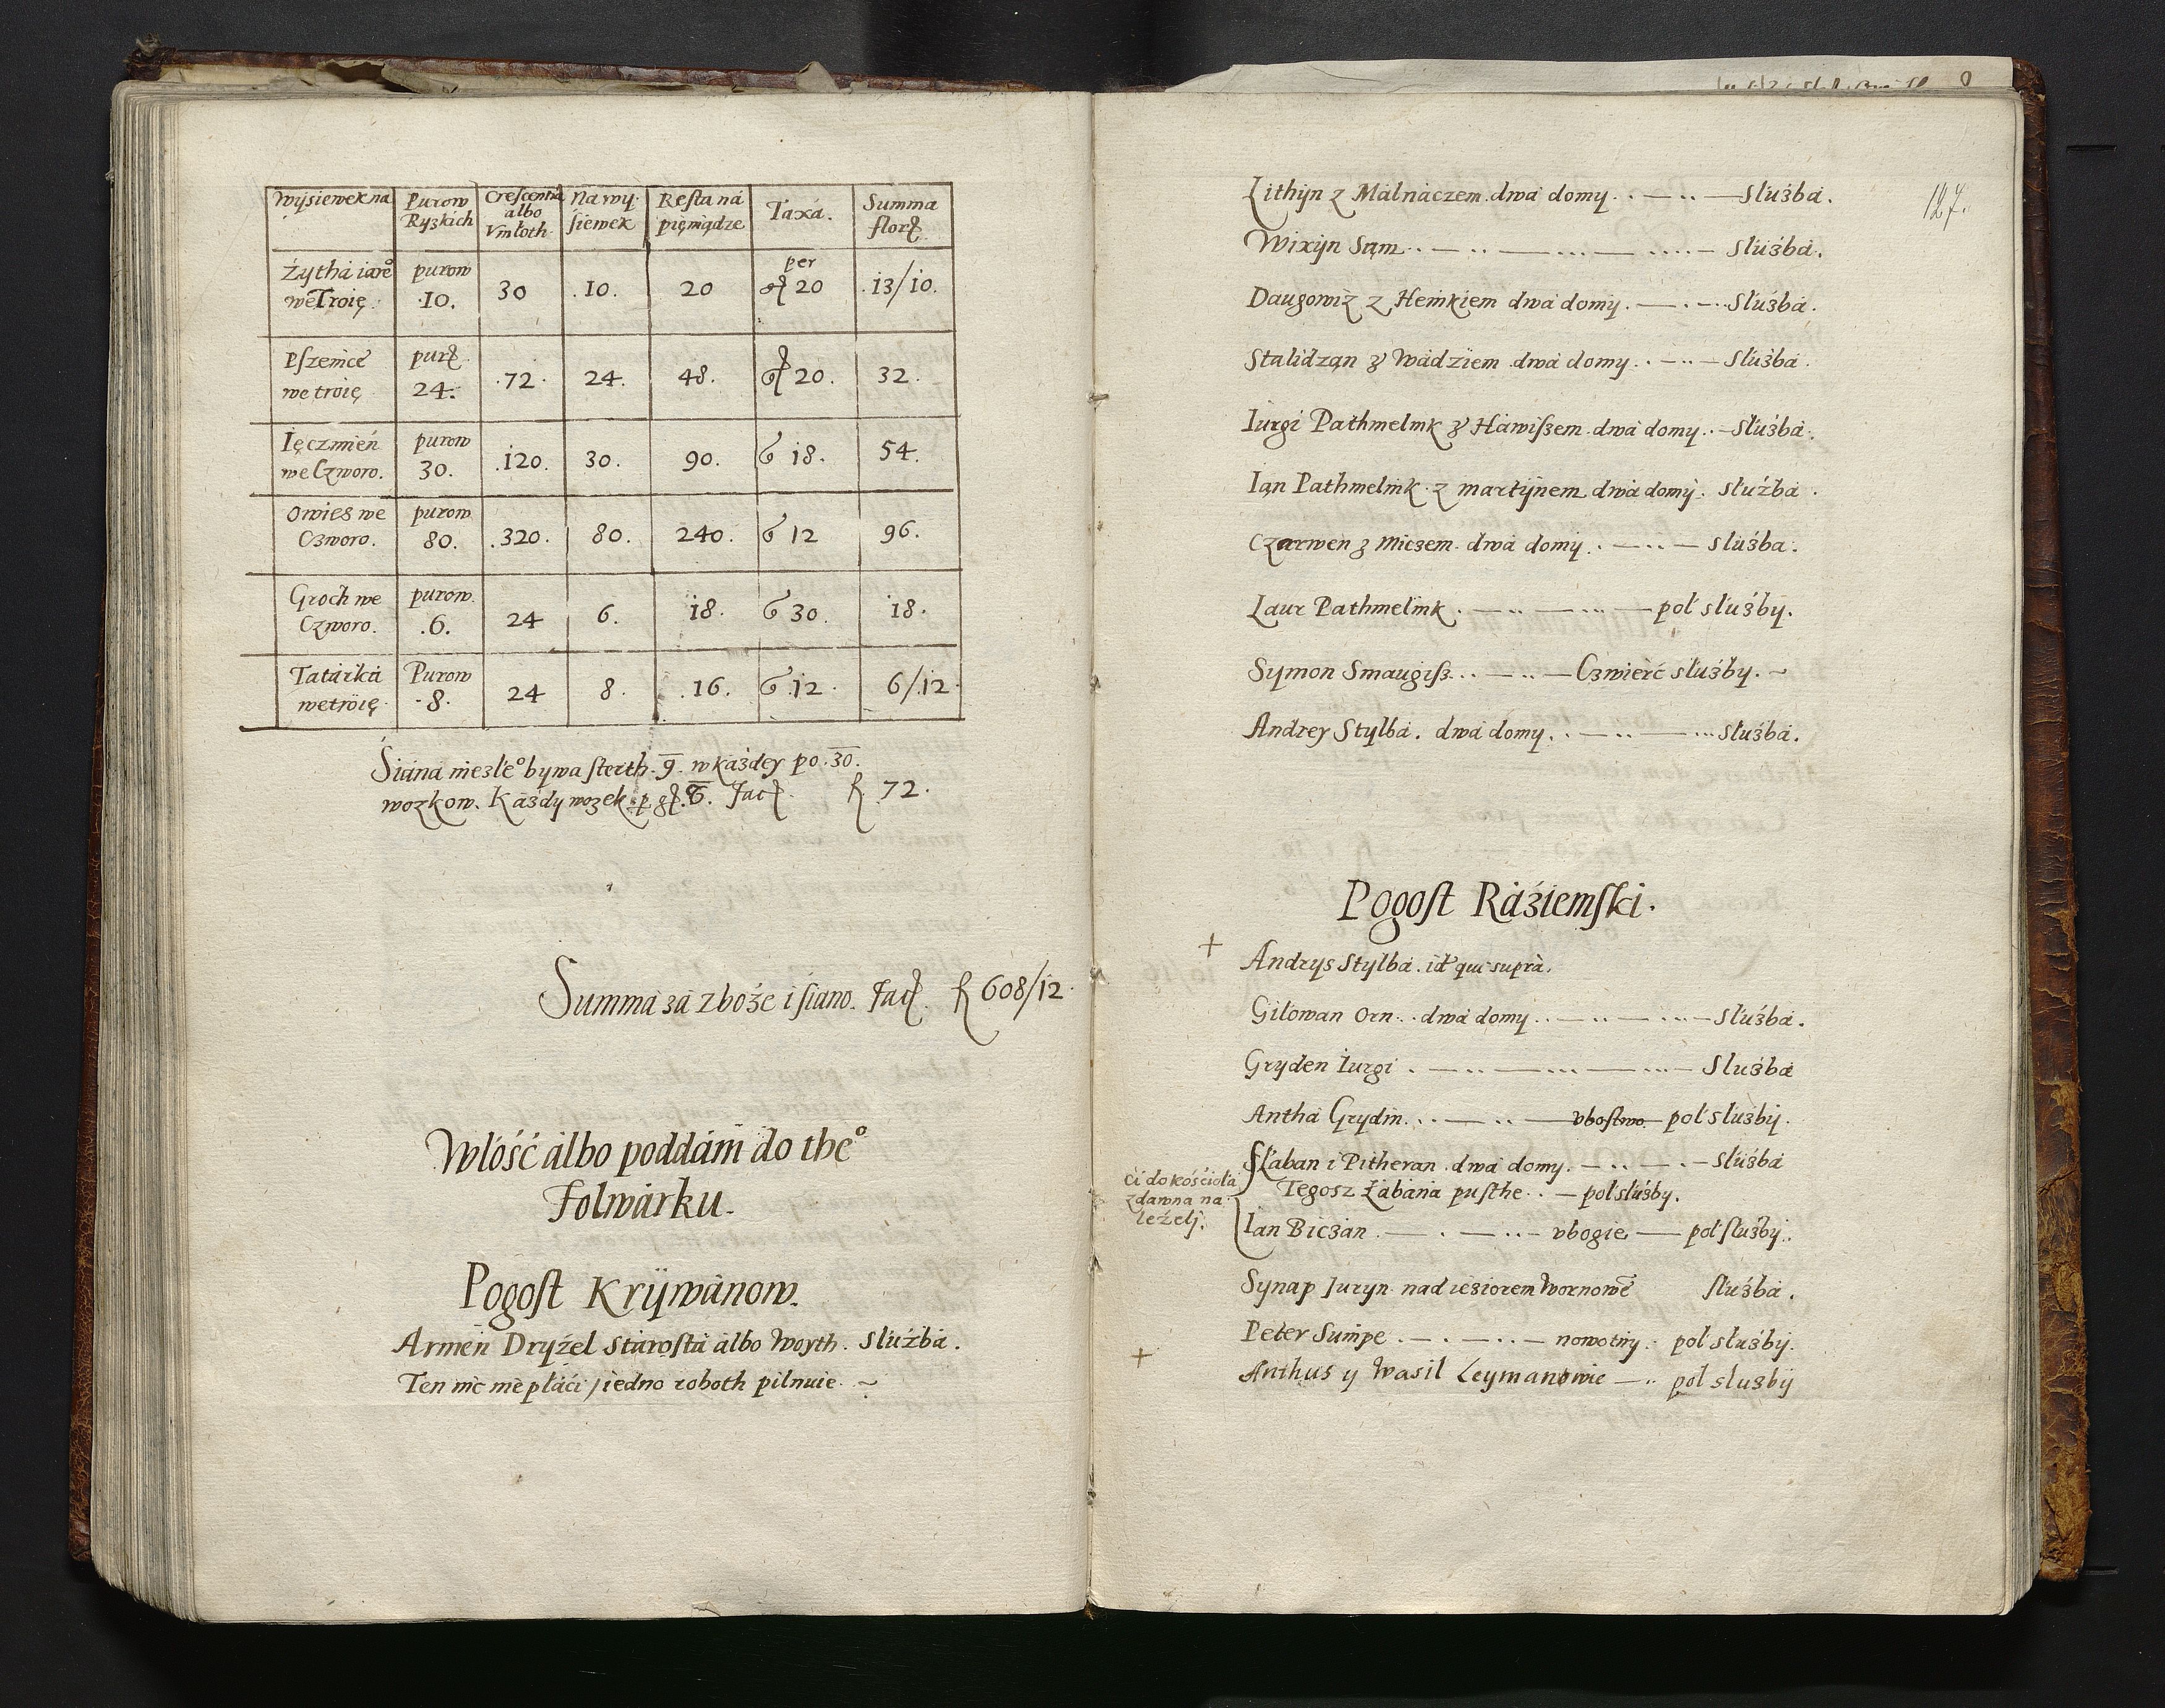 Wysiewek na | Purow Ryzkich | Crescentia albo Vmłoth | Na wysiewek | Resta ná pięniądze | Taxá. | Summa flor.
Żythá iareo we Troię. | purow .10. | 30 | .10. | 20 | per gr 20 | .13/10.
Pszenice we troię | pur. 24. | .72. | 24. | 48. | gr 20. | 32.
Ięczmień we Czworo. | purow 30. | .120. | 30. | 90. | G 18. | 54.
Owies we Czworo. | purow 80. | .320. | 80. | 240. | G 12 | 96.
Groch we Czworo. | purow .6. | 24 | 6. | 18. | G 30. | 18.
Tatárká we troię | Purow .8. | 24 | 8. | .16. | G .12. | 6/12.
Siáná niezłeo bywa sterth. 9. w każdey po .30.
wozkow. Każdy wozek p gr. 8. Fac f. 72.
Summá zá zboże i siano. Fac f 608/12.
Włość álbo poddáni do theo
Folwárku.
Pogost Krÿwánow.
Armen Dryżel Stárostá álbo Woyth. Służbá.
Ten nic nie płáći / iedno roboth pilnuie ~
127.
Lithÿn z Málnáczem. dwá domy. Służbá.
Wixÿn Sąm Służbá.
Daugowiz z Heinkiem dwá domy. Służbá.
Stalidzan z Wádziem dwá domy. Służbá.
Iurgi Pathmelnik z Háwiszem. dwá domy. Służbá.
Ian Pathmelnik z martÿnem dwá domÿ. służbá.
Czarwen z Miczem. dwá domy. służba.
Laur Pathmelnik. poł służby.
Symon Smaugisz... Czwierć służby. ~
Andrey Stylbá. dwá domy. służbá.
Pogost Ráziemski.
+ Andrys Stylbá. id qui suprà.
Gilowan Orn. dwá domy. Służbá.
Gryden Iurgi. Służbá
Anthá Grydin. vbostwo poł służbÿ.
Łaban i Pitheran. dwá domy. służbá
Ci do kościołá zdawna należeli.
Tegosz Łábáná pusthe. poł służby.
Ian Biczan. vbogie poł służbÿ.
Synap Juryn nad ieziorem Wornowē służbá.
Peter Sumpe. nowotny. poł służbÿ.
+ Anthus y Wasil Leymanowie poł służbÿ